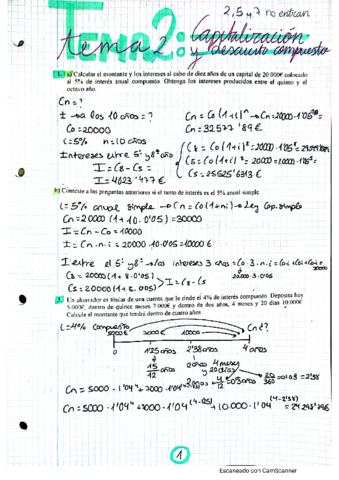 2, 5 y 7 no entran
Tema 2: Capitalización
y descuento compuesto
1. a) Calcular el montante y los intereses al cabo de diez años de un capital de 20 000€ colocado
al 5% de interés anual compuesto. Obtenga los intereses producidos entre el quinto y el
octavo año.
Cn = ?
I → a los 10 años = ?
Cn = Co (1+i)ⁿ → Cn = 20000 · 1'05¹⁰ =
Co = 20000
Cn = 32577'89€
i = 5% n = 10 años
Intereses entre 5º y 8º año
C8 = Co (1+i)⁸ = 20000 · 1'05⁸ =
I = C8 - C5 =
C5 = Co (1+i)⁵ = 20000 · 1'05⁵ =
I = 4023'477€
C5 = 25525'6313€
b) Conteste a las preguntas anteriores si el tanto de interés es el 5% anual simple
i = 5% anual simple → Cn = Co (1+ni) → Ley Cap. simple
Cn = 20000 (1 + 10 · 0'05) = 30000
I = Cn - Co = 10000
I = Cn · n · i = 20000 · 10 · 0'05 = 10000€
I entre el 5º y 8º → los interés 3 años → Co · 3 · n · i = Coi + Coi + Coi =
20000 · 3 · 0'05
C8 = 20000 (1 + 8 · 0'05)
I = C8 - C5
C5 = 20000 (1 + 5 · 0'05)
3. Un ahorrador es titular de una cuenta que le rinde el 4% de interés compuesto. Deposita hoy
5 000€, dentro de quince meses 7 000€ y dentro de dos años, 4 meses y 20 días 10 000€
Calcule el montante que tendrá dentro de cuatro años
i = 4% compuesto
5000€ 7000€ 10000€ Cn?
0 1'25 años 2'38 años 4 años
15/12 años
2 años 4 meses
y 20 días
Cn = 5000 · 1'04⁴ + 7000 · 1'04
Cn = 5000 · 1'04⁴ + 7000 · 1'04^(4-1'25) + 10.000 · 1'04^(4-2'38) =
1
Escaneado con CamScanner